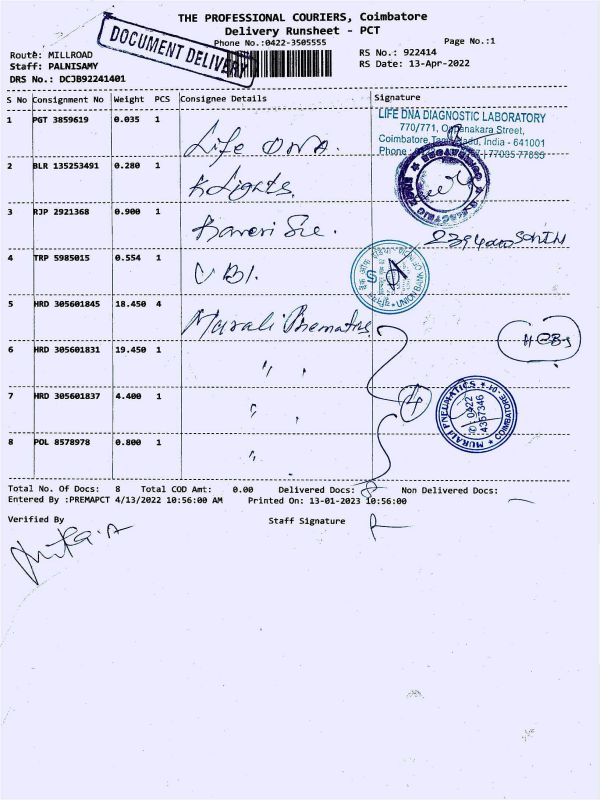 THE PROFESSIONAL COURIERS, Coimbatore
Delivery Runsheet - PCT
Phone No.:0422-3505555
Page No.:1
DOCUMENT DELIVERY
Route: MILLROAD
RS No.: 922414
Staff: PALNISAMY
RS Date: 13-Apr-2022
DRS No.: DCJB92241401
S No Consignment No Weight PCS Consignee Details Signature
1 PGT 3859619 0.035 1 Life DNA.
LIFE DNA DIAGNOSTIC LABORATORY
770/771, Oppanakara Street,
Coimbatore Tamil Nadu, India - 641001
Phone
2 BLR 135253491 0.280 1 Lights.
3 RJP 2921368 0.900 1
4 TRP 5985015 0.554 1 UBI.
UNION BANK OF INDIA
5 HRD 305601845 18.450 4 Murali Pnematics
6 HRD 305601831 19.450 1 "
7 HRD 305601837 4.400 1 "
4
MURALI PNEUMATICS * COIMBATORE
0422
4357346
8 POL 8578978 0.800 1 "
Total No. Of Docs: 8 Total COD Amt: 0.00 Delivered Docs: 8 Non Delivered Docs: —
Entered By :PREMAPCT 4/13/2022 10:56:00 AM Printed On: 13-01-2023 10:56:00
Verified By Staff Signature